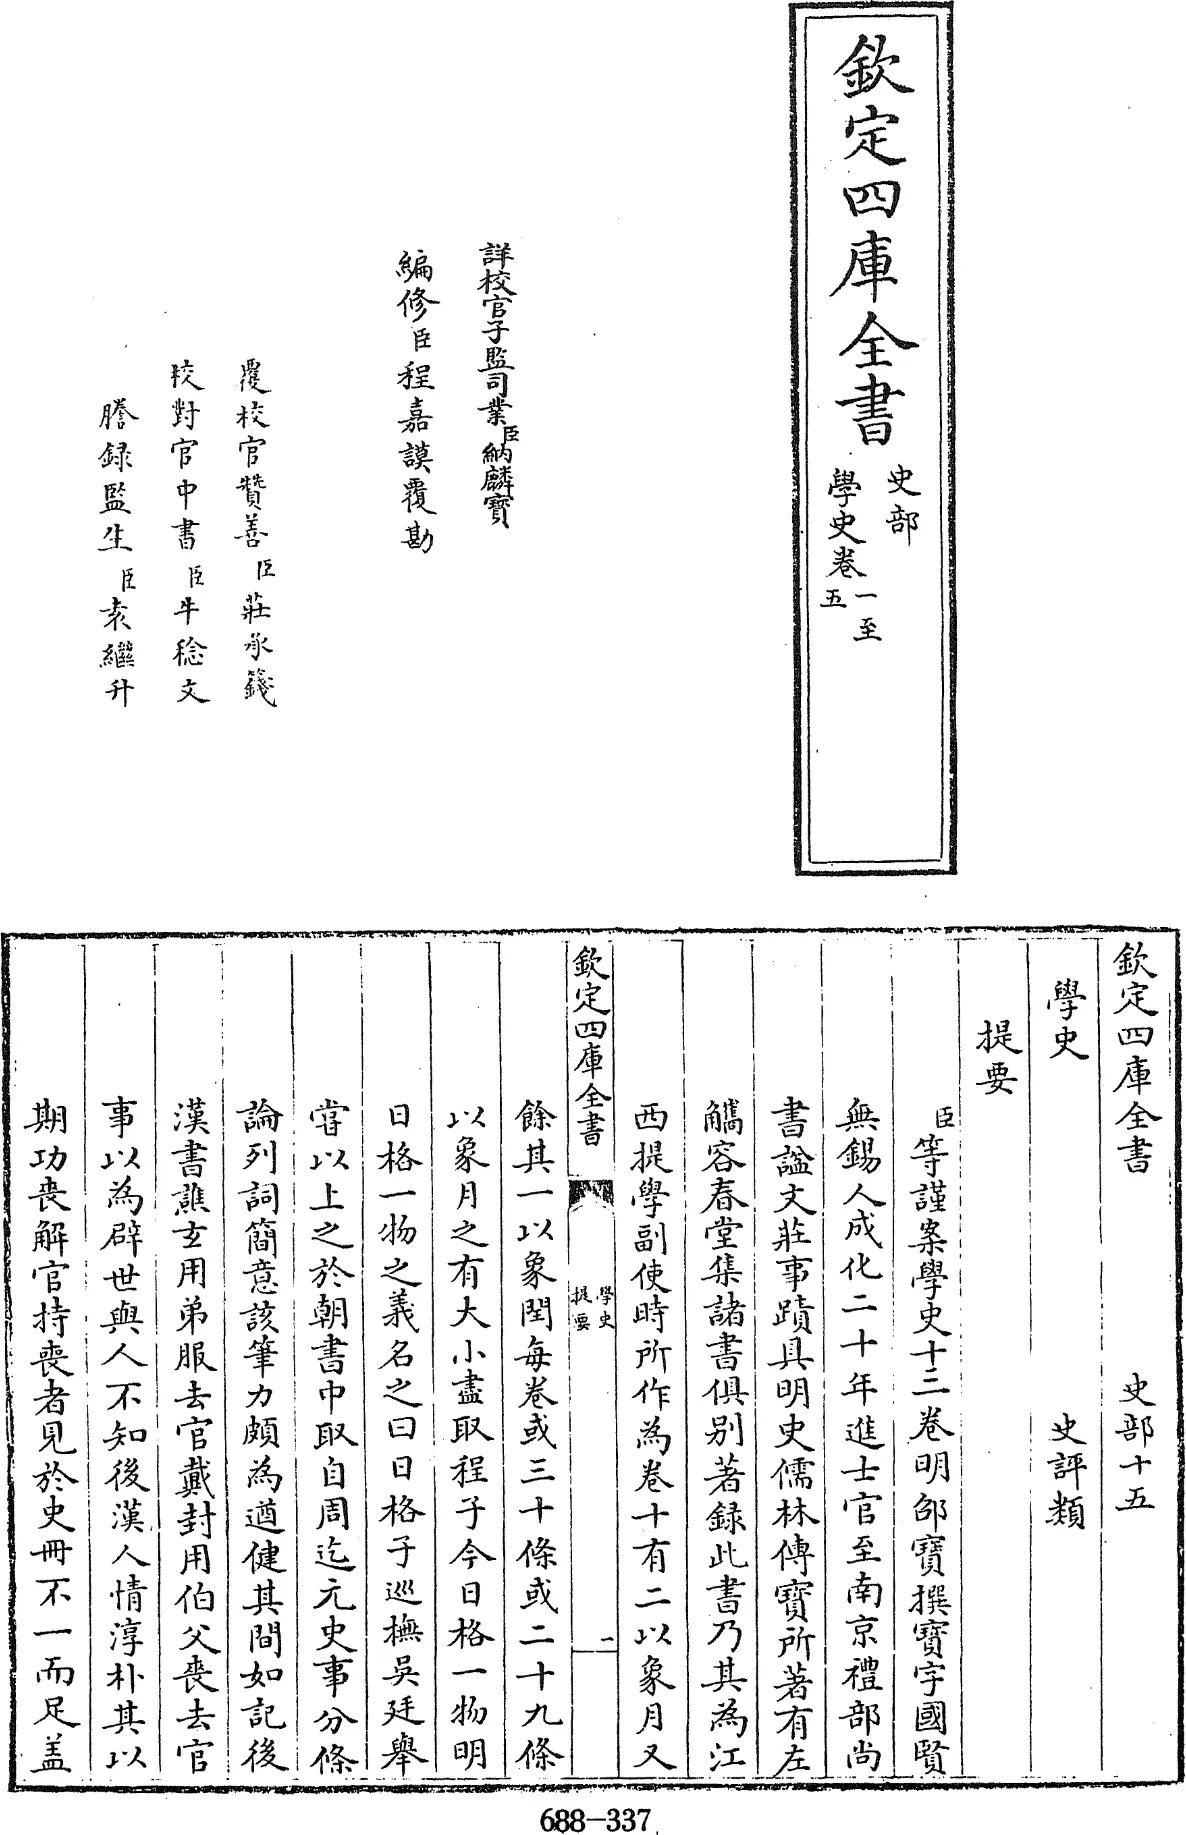 欽定四庫全書
史部
學史卷一至
五
詳校官子監司業臣納麟寶
編修臣程嘉謨覆勘
覆校官贊善臣莊承籛
校對官中書臣牛稔文
謄録監生臣袁繼升
欽定四庫全書 史部十五
學史 史評類
提要
臣等謹案學史十三卷明邵寶撰寶字國賢
無錫人成化二十年進士官至南京禮部尚
書諡文莊事蹟具明史儒林傳寶所著有左
觿容春堂集諸書俱别著録此書乃其為江
西提學副使時所作為卷十有二以象月又
欽定四庫全書
學史
提要
一
餘其一以象閏每卷或三十條或二十九條
以象月之有大小盡取程子今日格一物明
日格一物之義名之曰日格子巡撫吳廷舉
嘗以上之於朝書中取自周迄元史事分條
論列詞簡意該筆力頗為遒健其間如記後
漢書譙玄用弟服去官戴封用伯父喪去官
事以為辟世與人不知後漢人情淳朴其以
期功喪解官持喪者見於史冊不一而足盖
688-337